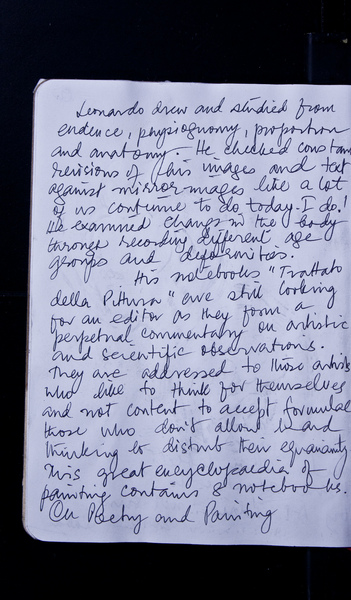 Leonardo drew and studied from
evidence, physiognomy, proportion
and anatomy. He checked constant
revisions of his images and text
against mirror-images like a lot
of us continue to do today. I do!
He examined changes in the body
through recording different age
groups and deformities.
His notebooks "Trattato
della Pittura" are still looking
for an editor as they form a
perpetual commentary on artistic
and scientific observations.
They are addressed to those artists
who like to think for themselves
and not content to accept formulae
those who don't allow hard
thinking to disturb their equanimity
This great encyclopaedia of
painting contains 8 notebooks.
On Poetry and Painting